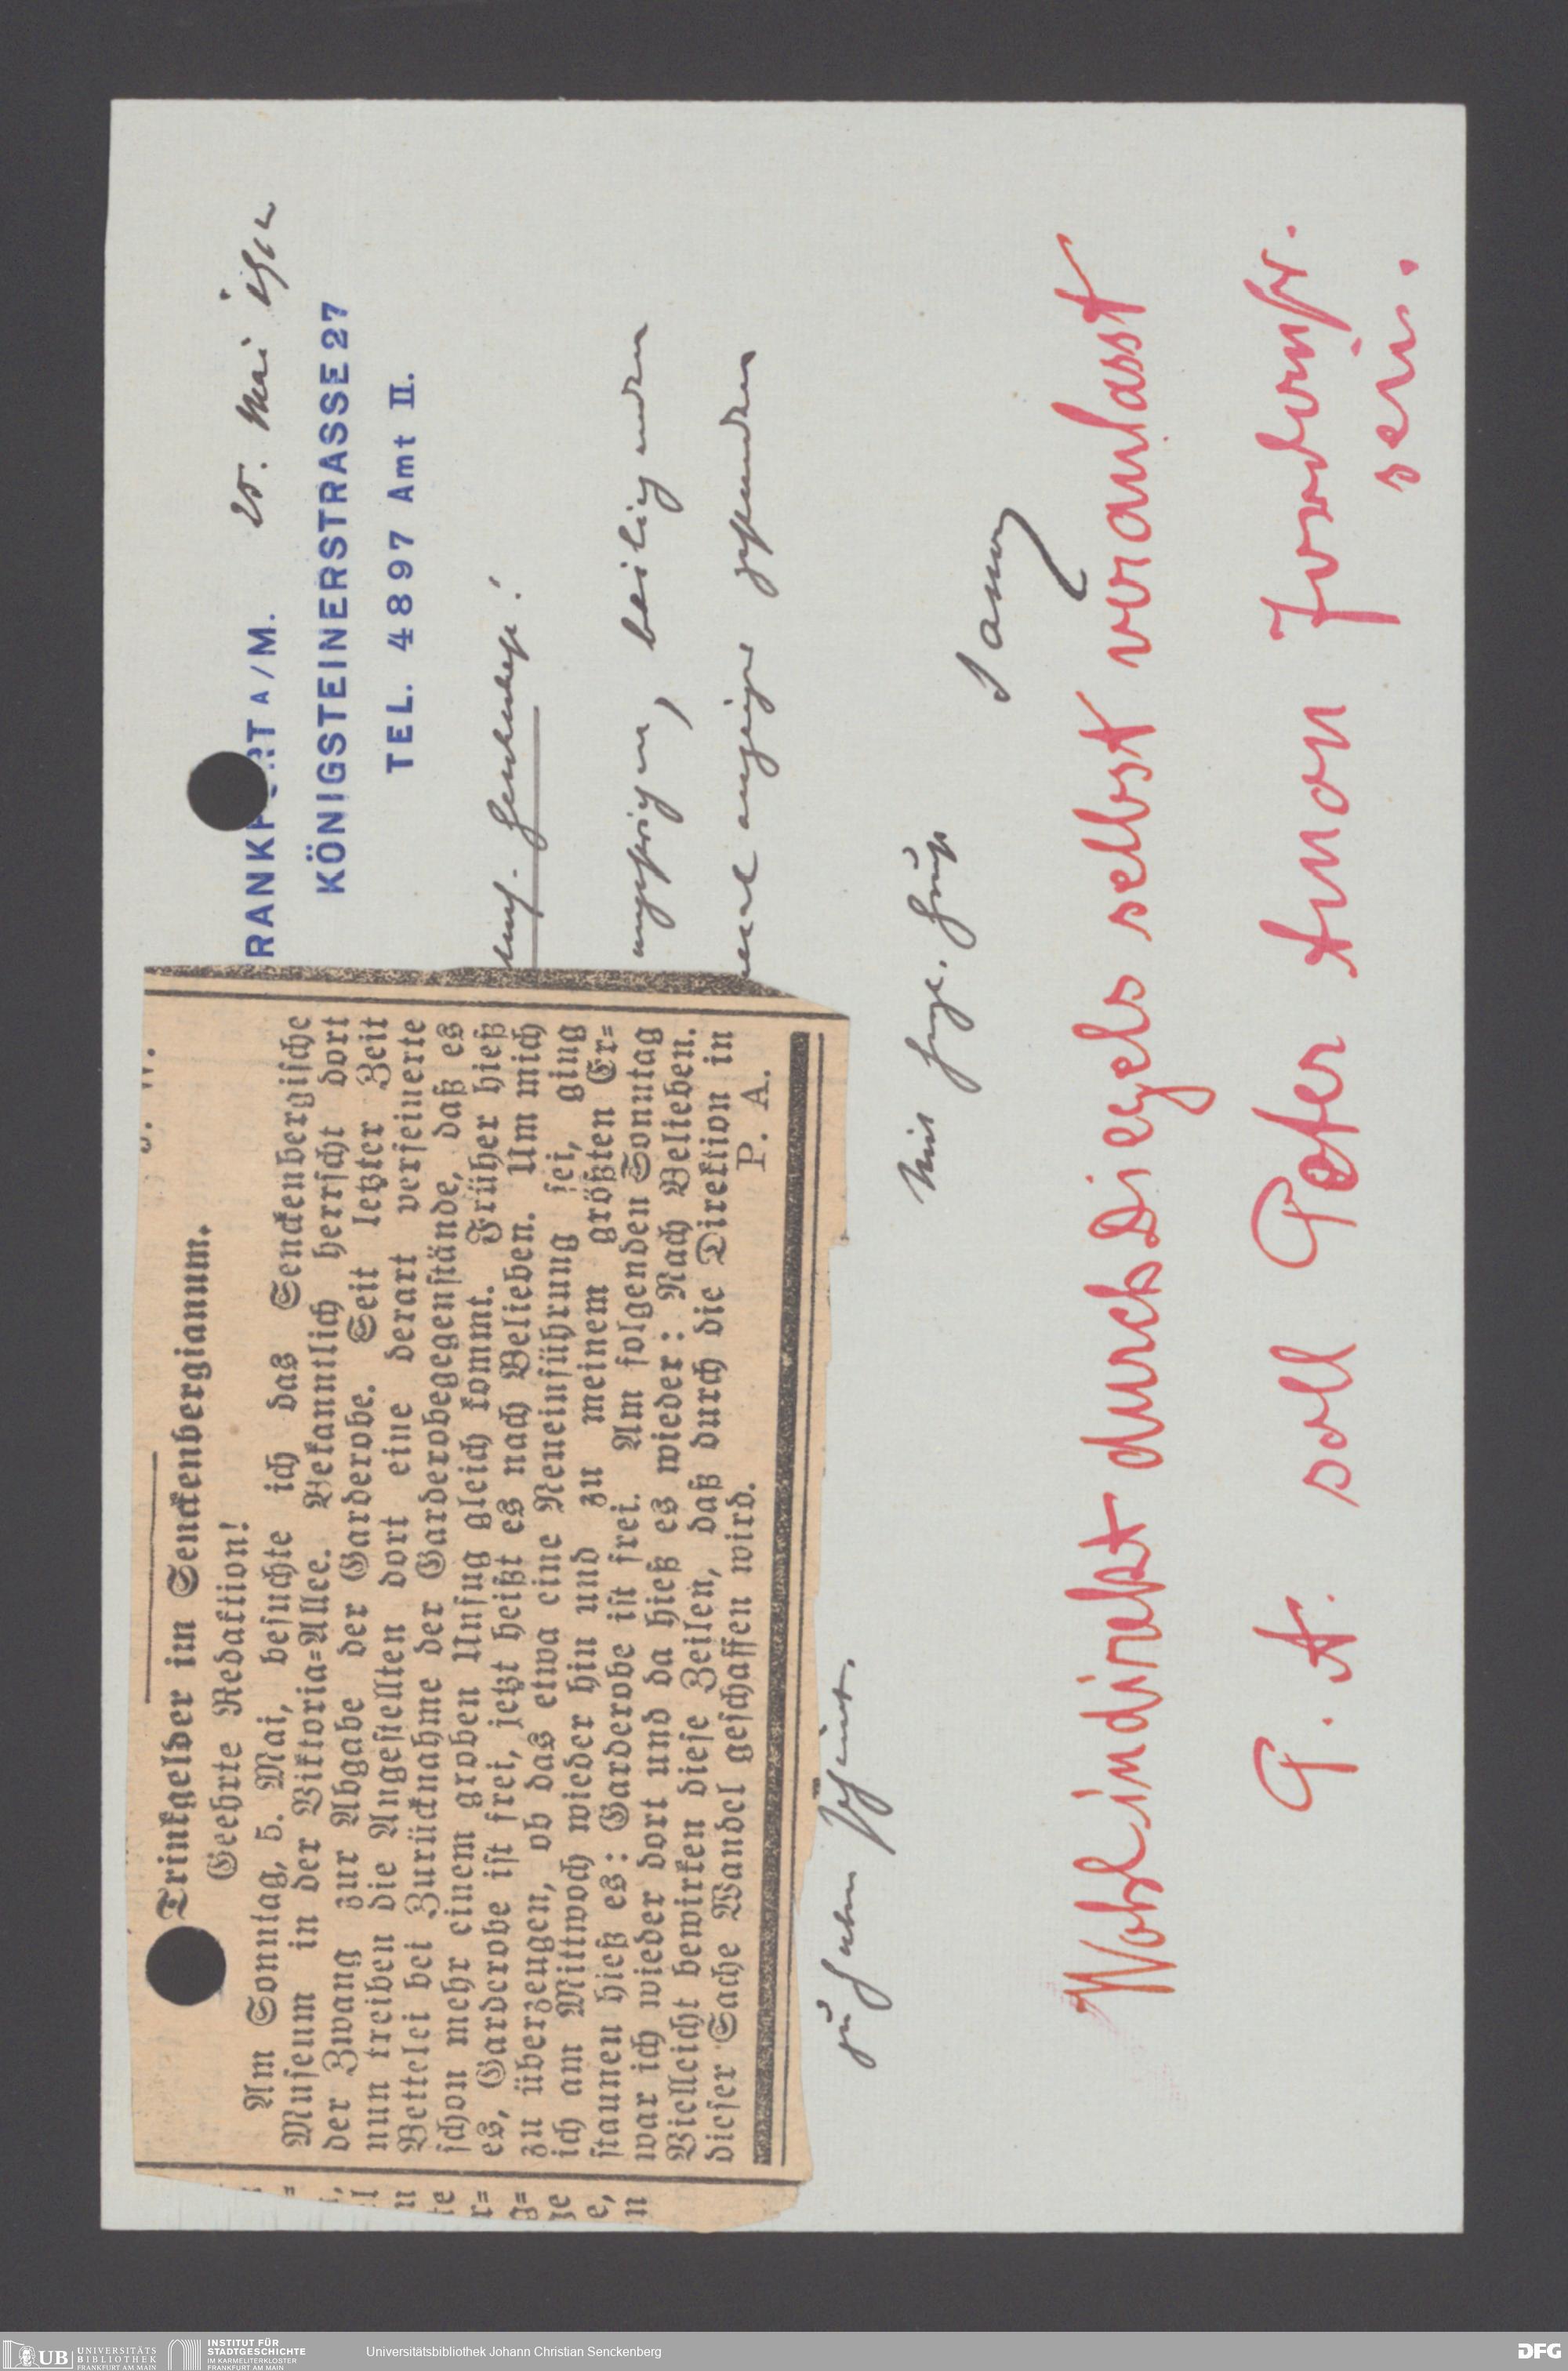 Trinkgelder im Senckenbergianum.
Geehrte Redaktion!
Am Sonntag, 5. Mai, besuchte ich das Senckenbergische
Museum in der Viktoria=Allee. Bekanntlich herrscht dort
der Zwang zur Abgabe der Garderobe. Seit letzter Zeit
nun treiben die Angestellten dort eine derart verfeinerte
Bettelei bei Zurücknahme der Garderobegegenstände, daß es
schon mehr einem groben Unfug gleich kommt. Früher hieß
es, Garderobe ist frei, jetzt heißt es nach Belieben. Um mich
zu überzeugen, ob das etwa eine Neueinführung sei, ging
ich am Mittwoch wieder hin und zu meinem größten Er=
staunen hieß es: Garderobe ist frei. Am folgenden Sonntag
war ich wieder dort und da hieß es wieder: Nach Belieben.
Vielleicht bewirken diese Zeilen, daß durch die Direktion in
dieser Sache Wandel geschaffen wird.
P. A.
RANKF RT A/M. 25. Mai
KÖNIGSTEINERSTRASSE 27
TEL. 4897 Amt II.
beiliegenden
gefunden
zu haben scheint.
Mit
Wohl indirekt durch Diegels selbst veranlasst
P. A. soll Peter Amon
sein.
UB UNIVERSITÄTS
BIBLIOTHEK
FRANKFURT AM MAIN
INSTITUT FÜR
STADTGESCHICHTE
IM KARMELITERKLOSTER
FRANKFURT AM MAIN
Universitätsbibliothek Johann Christian Senckenberg
DFG